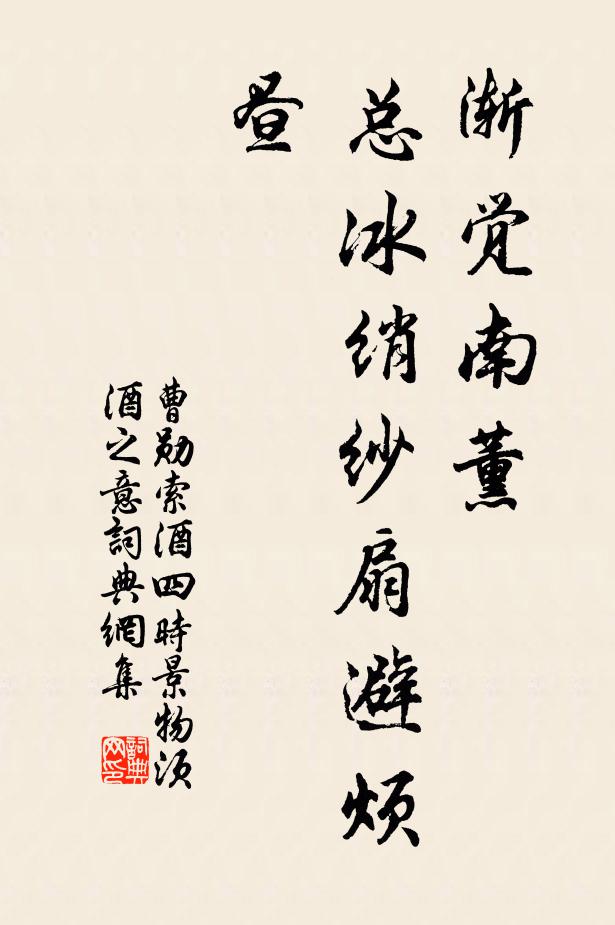 渐觉南薰
总冰绡纱扇避烦
昼
曹勋索酒四時景物须
酒之意詞典網集
詞典
网印